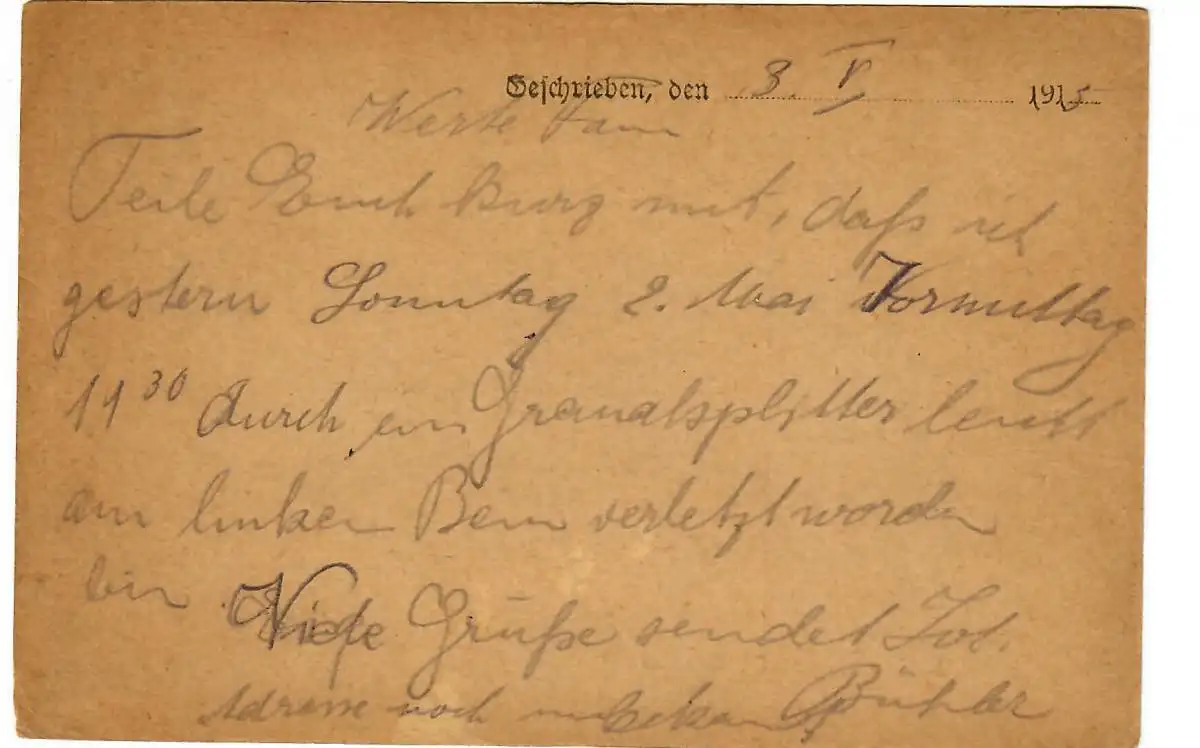 Geschrieben, den 3. V 1915
Werte Fam
Teile Euch kurz mit, daß ich
gestern Sonntag 2. Mai Vormittag
11 30 durch ein Granatsplitter leicht
am linken Bein verletzt worden
bin Viele Grüße sendet Jos.
Adresse noch unbekannt Bühler